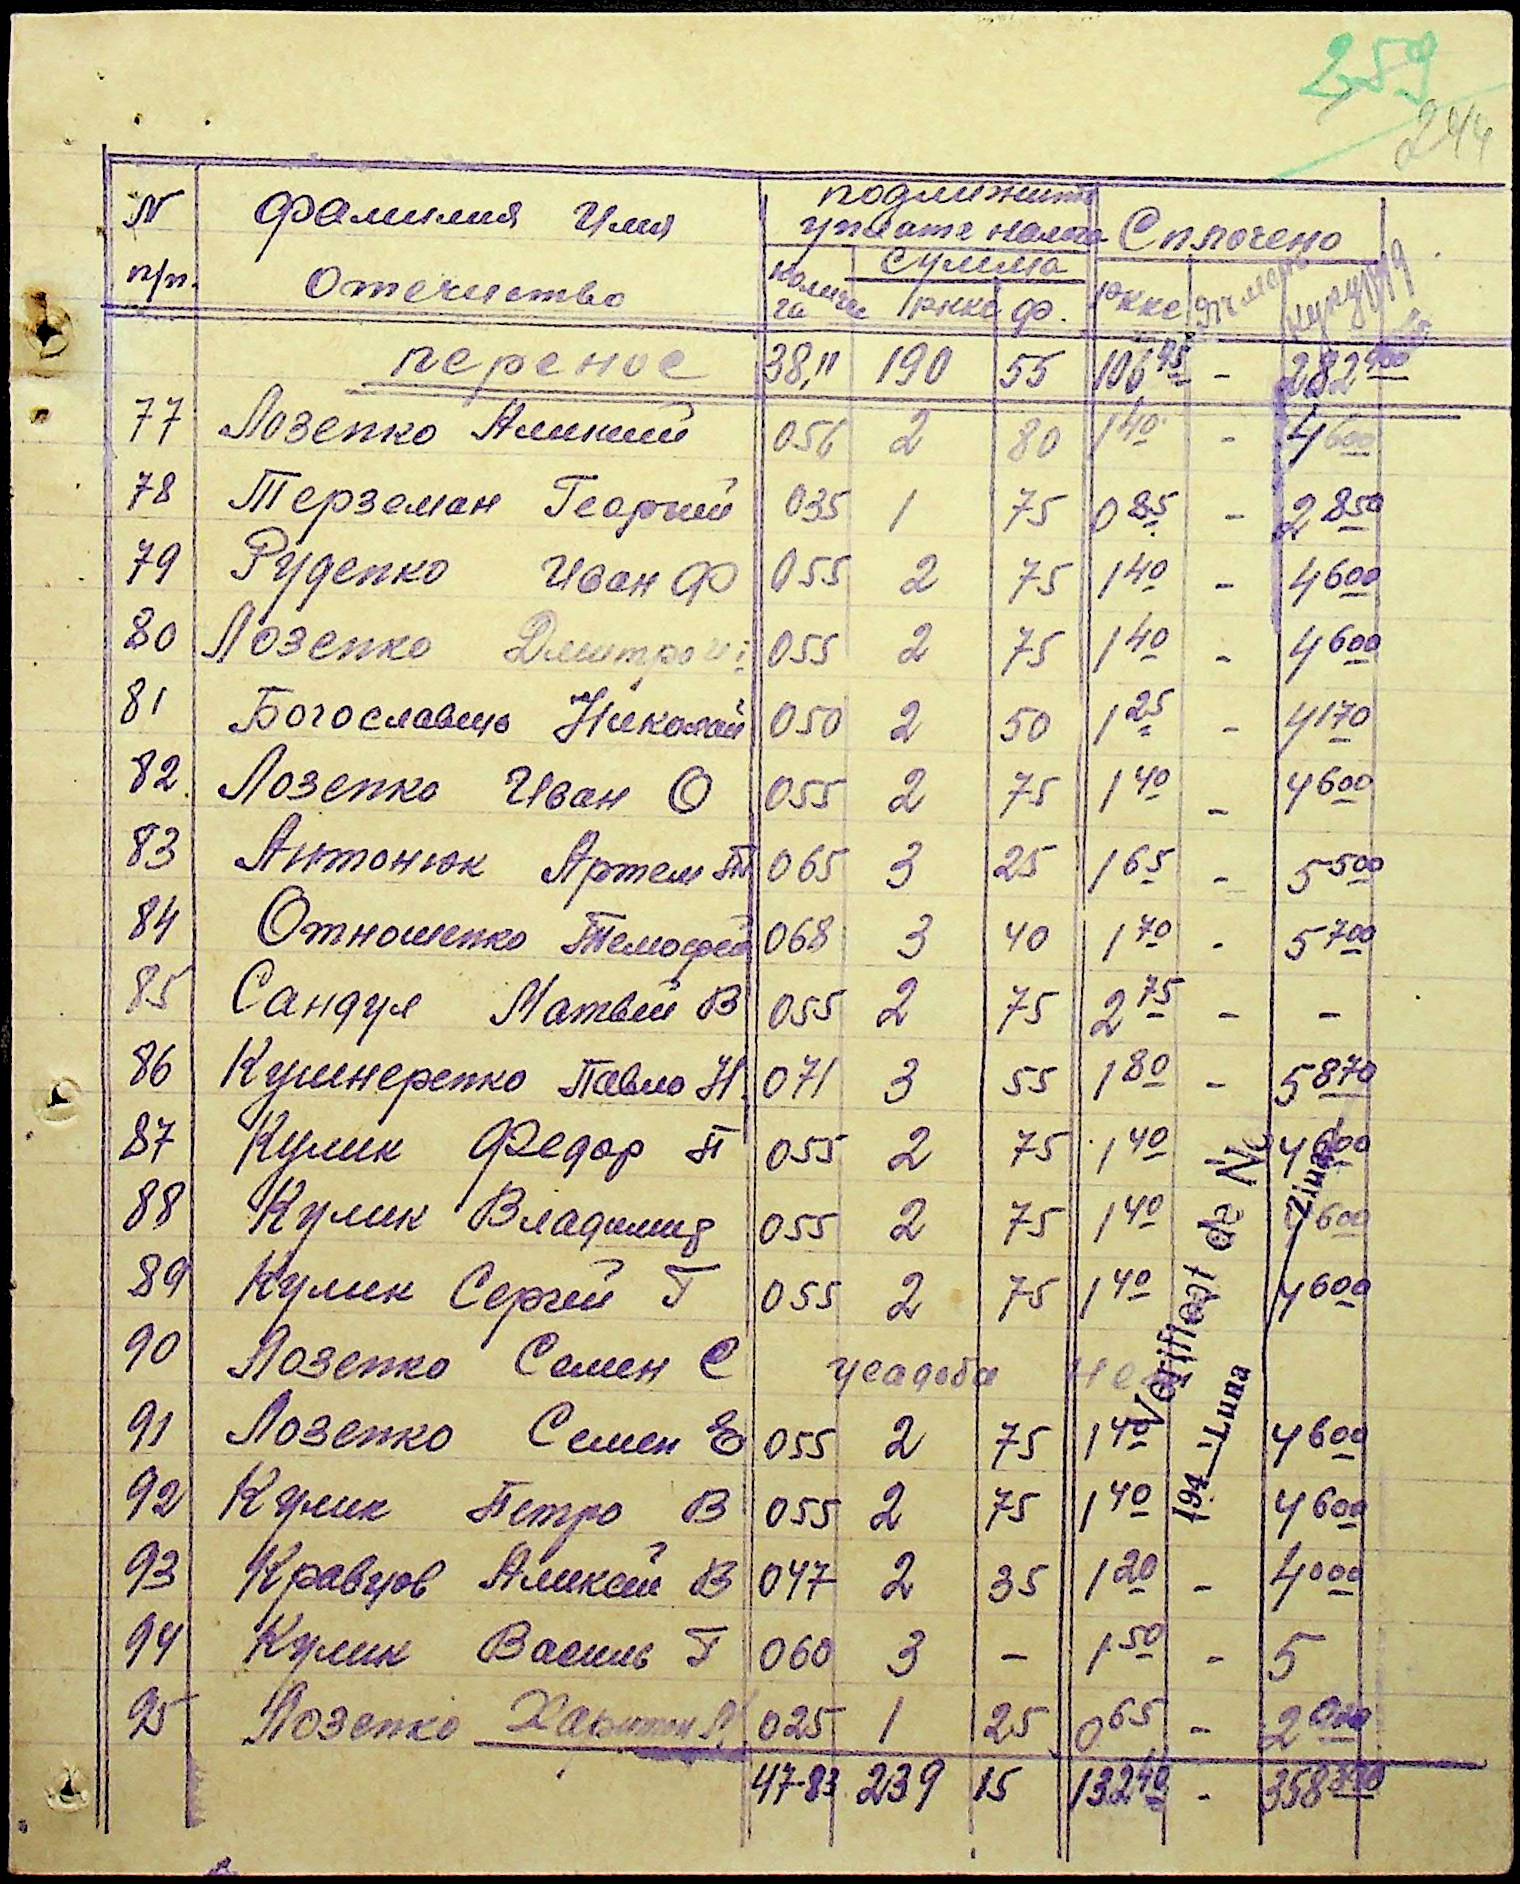 259
244
N Фамилия Имя подлижит
уплате налога Сплочено
п/п. Отечиство колич га сумма ркке ф. ркке кукурузя
перенос 38,11 190 55 106 95 - 282 900
77 Лозенко Аликсий 056 2 80 1 40 - 4 600
78 Терземан Георгий 035 1 75 0 85 - 2 850
79 Руденко Иван Ф 055 2 75 1 40 - 4 600
80 Лозенко Дмитро 055 2 75 1 40 - 4 600
81 Богославець Николай 050 2 50 1 25 - 4 170
82 Лозенко Иван О 055 2 75 1 40 - 4 600
83 Антонюк Артем П 065 3 25 1 65 - 5 500
84 Отношенко Темофей 068 3 40 1 70 - 5 700
85 Сандул Матвий В 055 2 75 2 75 - -
86 Кушнеренко Павло Н. 071 3 55 1 80 - 5 870
87 Кулик Федор П 055 2 75 1 40 4 600
88 Кулик Владимир 055 2 75 1 40 4 600
89 Кулик Сергий Г 055 2 75 1 40 4 600
90 Лозенко Семен С усадьба нет
91 Лозенко Семен Е 055 2 75 1 40 4 600
92 Кулик Петро В 055 2 75 1 40 4 600
93 Кравцов Аликсий В 047 2 35 1 20 - 4 000
94 Кулик Василь Г 060 3 - 1 50 - 5
95 Лозенко Харитон 025 1 25 0 65 - 2 000
47-83 239 15 132 40 - 358 890
Verificat de Noi
194 Luna Ziua